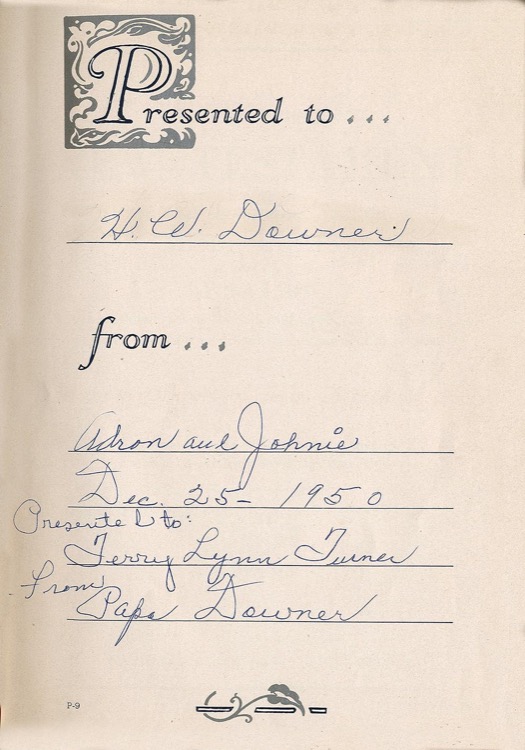 Presented to...
H. W. Downer
from...
Adron and Johnie
Dec. 25 - 1950
Presented to:
Terry Lynn Turner
From
Papa Downer
P-9